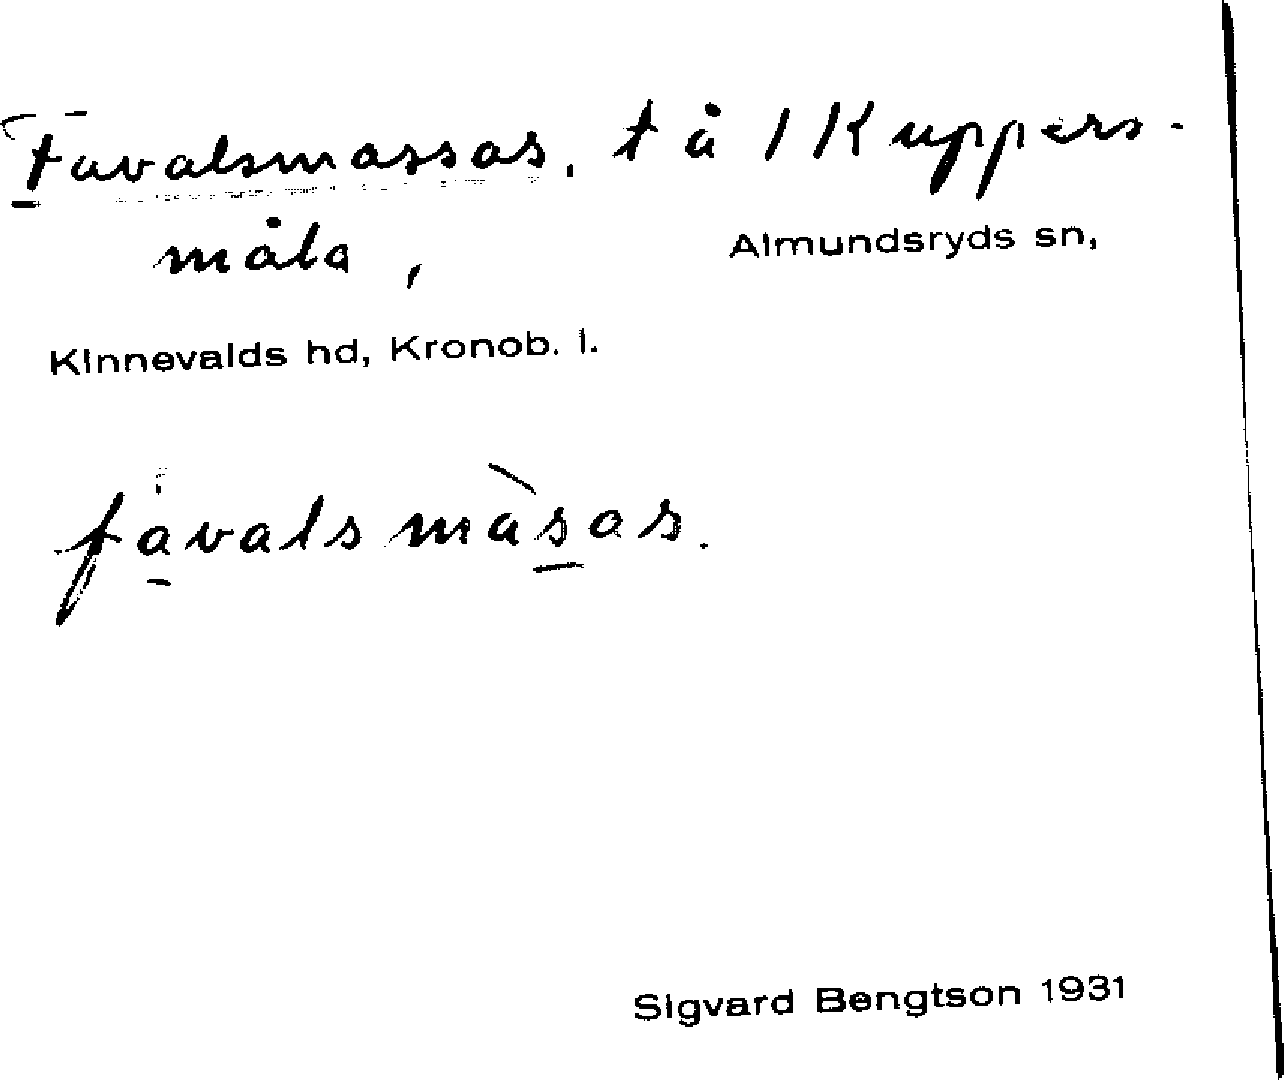 Favalsmassas, t å 1 Kuppers-
måla,
Almundsryds sn,
Kinnevalds hd, Kronob. l.
fàvalsmàsas.
Sigvard Bengtson 1931